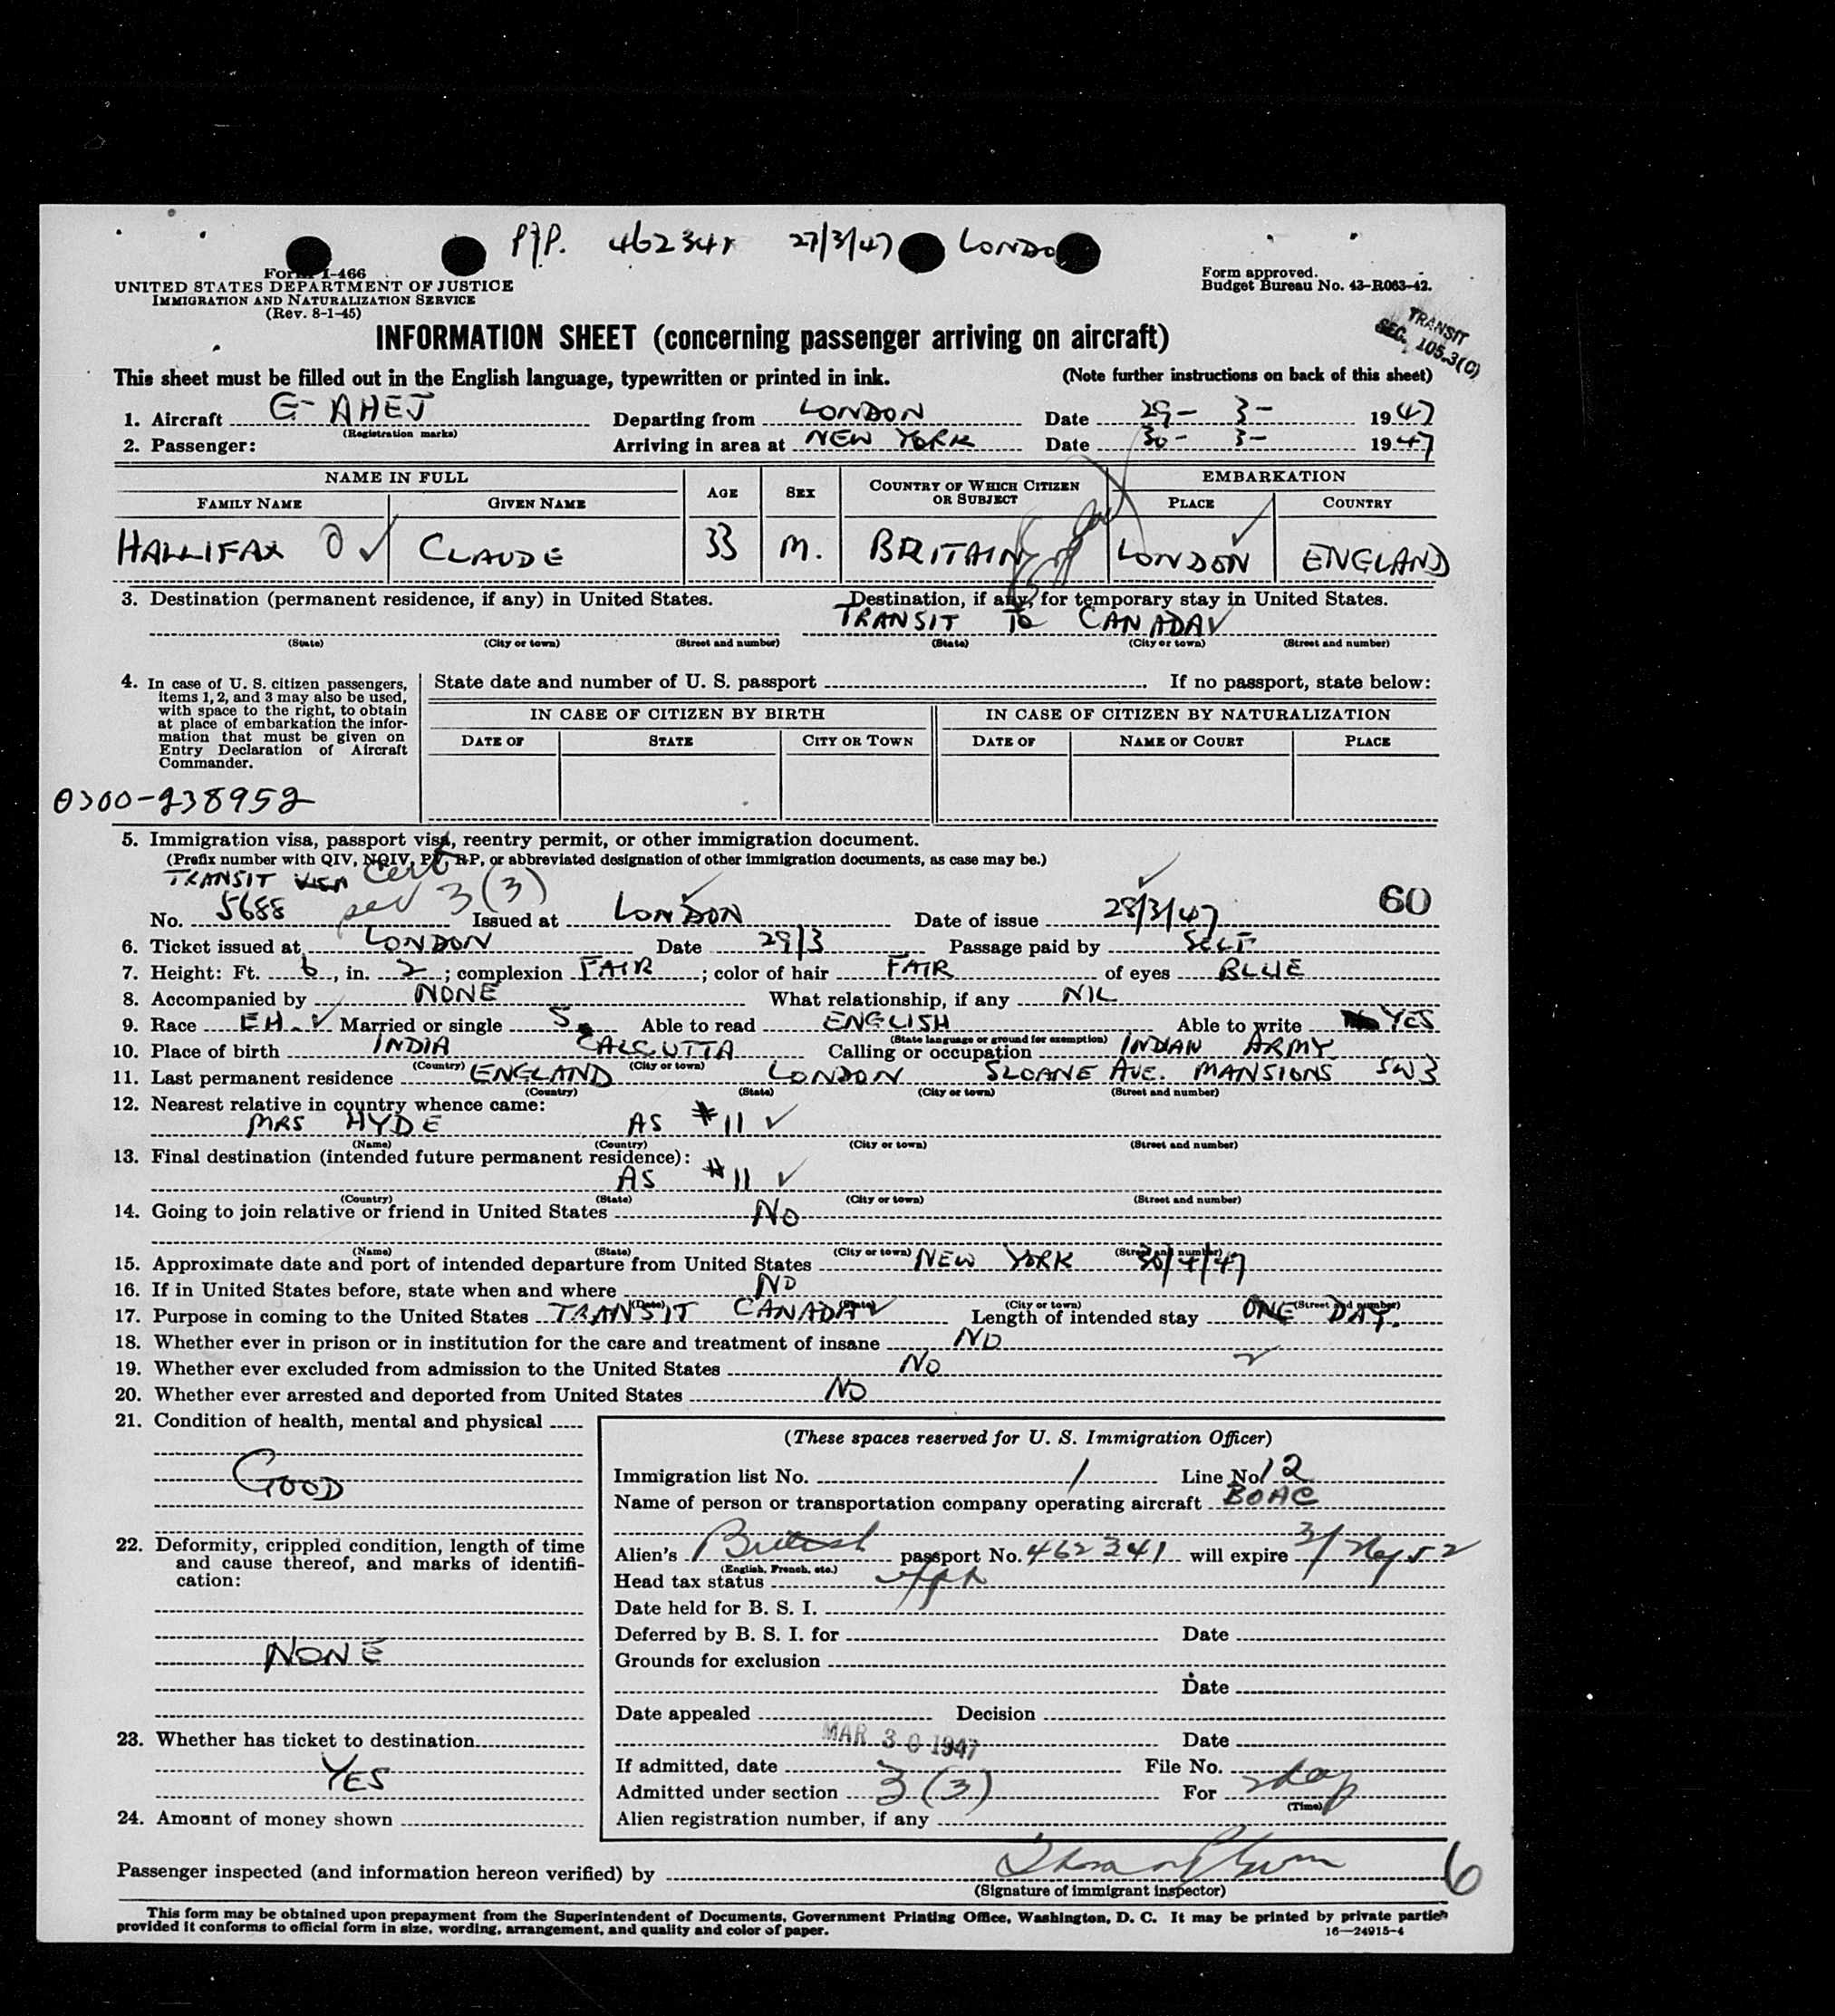 P/P. 462341 27/3/47 LONDON
Form I-466
UNITED STATES DEPARTMENT OF JUSTICE
IMMIGRATION AND NATURALIZATION SERVICE
(Rev. 8-1-45)
Form approved.
Budget Bureau No. 43-R063-42.
TRANSIT
SEC. 105.3(C)
INFORMATION SHEET (concerning passenger arriving on aircraft)
This sheet must be filled out in the English language, typewritten or printed in ink. (Note further instructions on back of this sheet)
1. Aircraft G-AHEJ Departing from LONDON Date 29- 3- 1947
(Registration marks)
2. Passenger: Arriving in area at NEW YORK Date 30- 3- 1947
NAME IN FULL AGE SEX COUNTRY OF WHICH CITIZEN OR SUBJECT EMBARKATION
FAMILY NAME GIVEN NAME PLACE COUNTRY
HALLIFAX CLAUDE 33 M. BRITAIN LONDON ENGLAND
3. Destination (permanent residence, if any) in United States. Destination, if any, for temporary stay in United States.
TRANSIT TO CANADA
(State) (City or town) (Street and number) (State) (City or town) (Street and number)
4. In case of U. S. citizen passengers, items 1, 2, and 3 may also be used, with space to the right, to obtain at place of embarkation the information that must be given on Entry Declaration of Aircraft Commander.
State date and number of U. S. passport If no passport, state below:
IN CASE OF CITIZEN BY BIRTH IN CASE OF CITIZEN BY NATURALIZATION
DATE OF STATE CITY OR TOWN DATE OF NAME OF COURT PLACE
0300-238952
5. Immigration visa, passport visa, reentry permit, or other immigration document.
(Prefix number with QIV, NQIV, PV, RP, or abbreviated designation of other immigration documents, as case may be.)
TRANSIT VISA Cert
sec 3(3) 60
No. 5688 Issued at LONDON Date of issue 28/3/47
6. Ticket issued at LONDON Date 29/3 Passage paid by SELF
7. Height: Ft. 6, in. 2; complexion FAIR; color of hair FAIR of eyes BLUE
8. Accompanied by NONE What relationship, if any NIL
9. Race EH. Married or single S. Able to read ENGLISH Able to write YES
(State language or ground for exemption)
10. Place of birth INDIA CALCUTTA Calling or occupation INDIAN ARMY
(Country) (City or town)
11. Last permanent residence ENGLAND LONDON SLOANE AVE. MANSIONS SW3
(Country) (State) (City or town) (Street and number)
12. Nearest relative in country whence came:
MRS HYDE AS #11
(Name) (Country) (City or town) (Street and number)
13. Final destination (intended future permanent residence):
AS #11
(Country) (State) (City or town) (Street and number)
14. Going to join relative or friend in United States NO
(Name) (State) (City or town) (Street and number)
15. Approximate date and port of intended departure from United States NEW YORK 30/4/47
16. If in United States before, state when and where NO
(Date) (State) (City or town) (Street and number)
17. Purpose in coming to the United States TRANSIT CANADA Length of intended stay ONE DAY.
18. Whether ever in prison or in institution for the care and treatment of insane NO
19. Whether ever excluded from admission to the United States NO
20. Whether ever arrested and deported from United States NO
21. Condition of health, mental and physical
GOOD
22. Deformity, crippled condition, length of time and cause thereof, and marks of identification:
NONE
23. Whether has ticket to destination
YES
24. Amount of money shown
(These spaces reserved for U. S. Immigration Officer)
Immigration list No. 1 Line No. 12
Name of person or transportation company operating aircraft BOAC
Alien's British passport No. 462341 will expire
(English, French, etc.)
Head tax status
Date held for B. S. I.
Deferred by B. S. I. for Date
Grounds for exclusion
Date
Date appealed Decision
MAR 30 1947 Date
If admitted, date File No.
Admitted under section 3 (3) For
(Time)
Alien registration number, if any
Passenger inspected (and information hereon verified) by
(Signature of immigrant inspector)
6
This form may be obtained upon prepayment from the Superintendent of Documents, Government Printing Office, Washington, D. C. It may be printed by private parties
provided it conforms to official form in size, wording, arrangement, and quality and color of paper. 16—24915-4